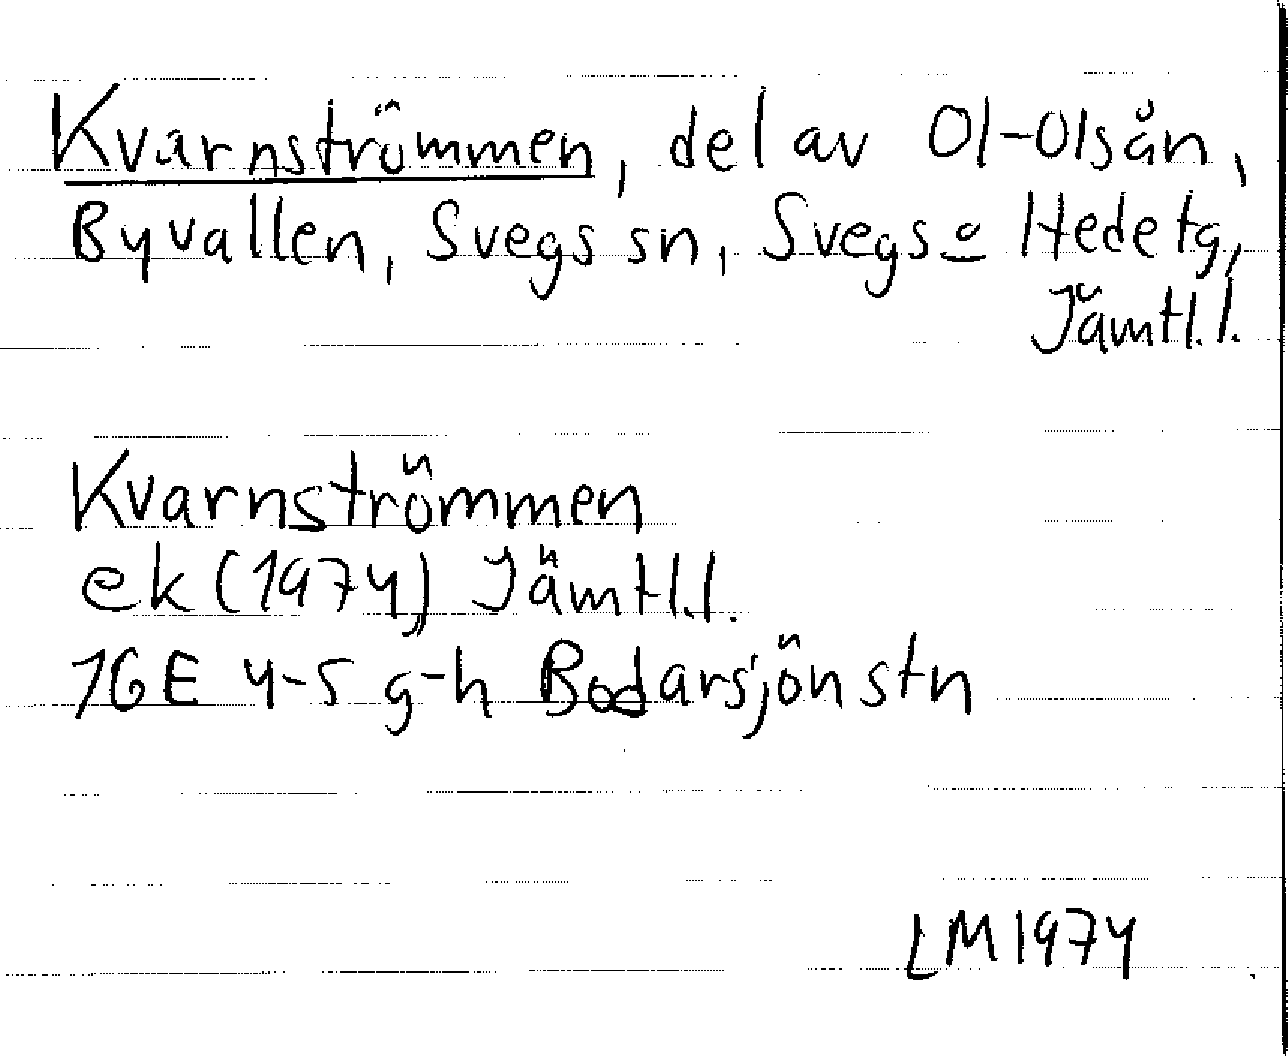 Kvarnströmmen, del av Ol-Olsån,
Byvallen, Svegs sn, Svegs o Hede tg,
Jämtl.l.
Kvarnströmmen
ek (1974) Jämtl.l.
16E 4-5 g-h Bodarsjön stn
LM 1974